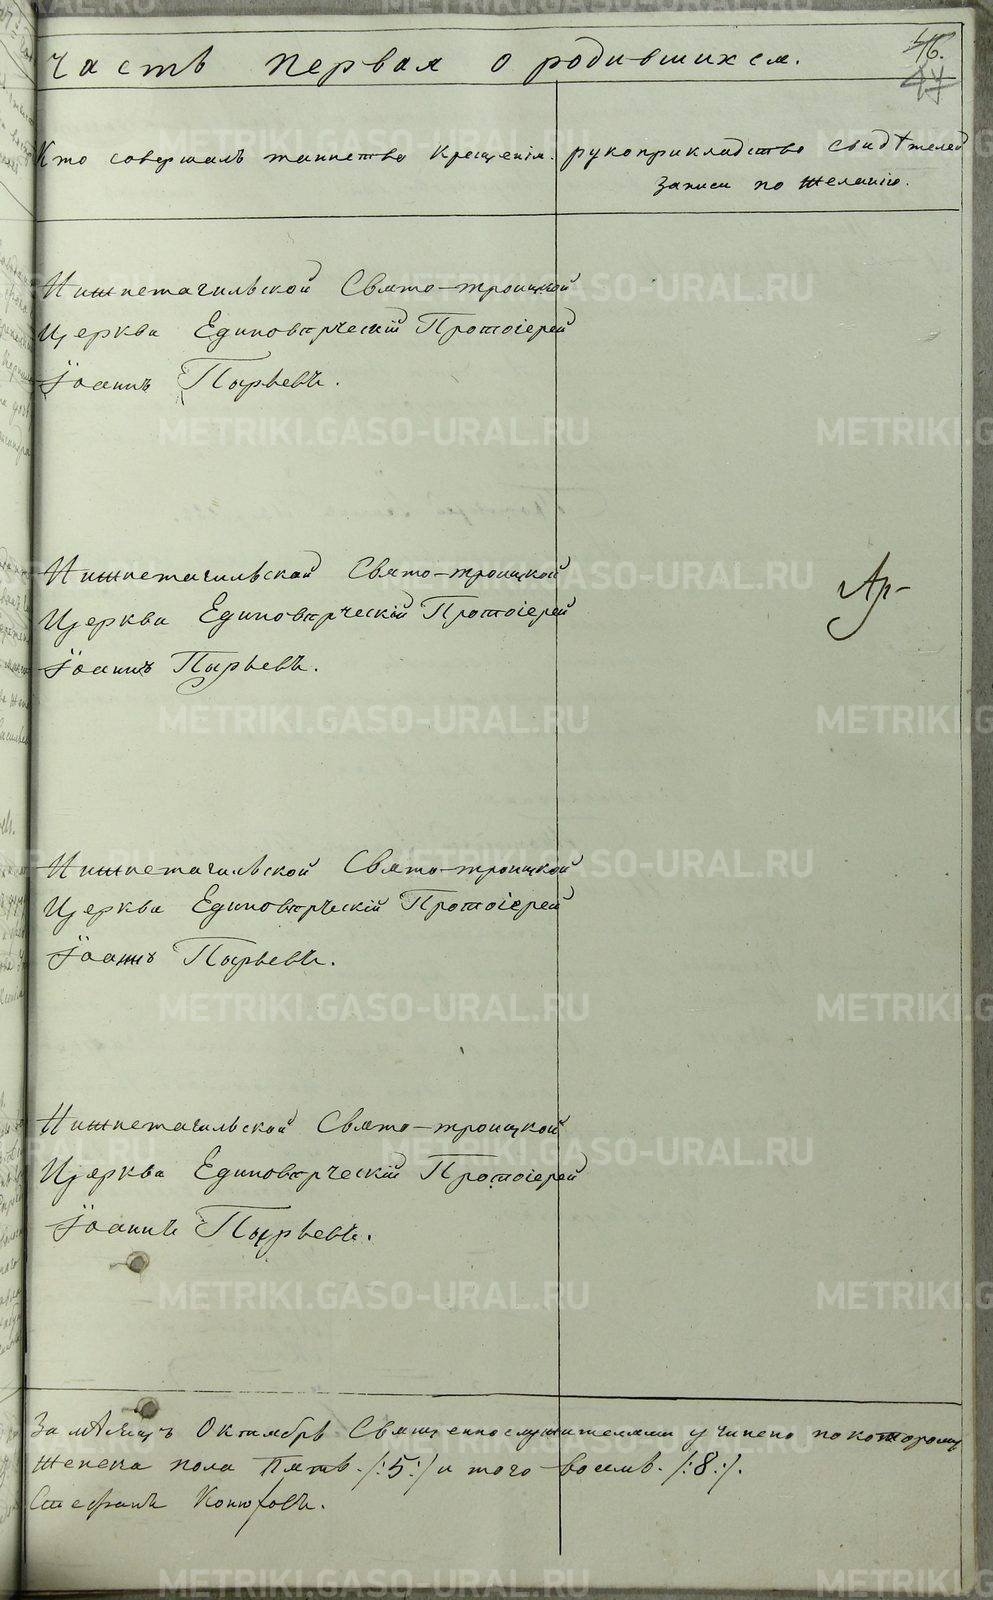 Часть первая о родившихся.
46.
44
Кто совершалъ таинство крещенія.
рукоприкладство свидѣтелей
записи по желанію.
Нижнетагильской Свято-троицкой
Церкви Единовѣрческій Протоіерей
Іоаннъ Пырьевъ.
Нижнетагильской Свято-троицкой
Церкви Единовѣрческій Протоіерей
Іоаннъ Пырьевъ.
Нижнетагильской Свято-троицкой
Церкви Единовѣрческій Протоіерей
Іоаннъ Пырьевъ.
Нижнетагильской Свято-троицкой
Церкви Единовѣрческій Протоіерей
Іоаннъ Пырьевъ.
За мѣсяцъ Октябрь Священнослужителями учинено по которому
женска пола пять. /:5:/ и того восемь. /:8:/.
Стефанъ Конюховъ.
METRIKI.GASO-URAL.RU